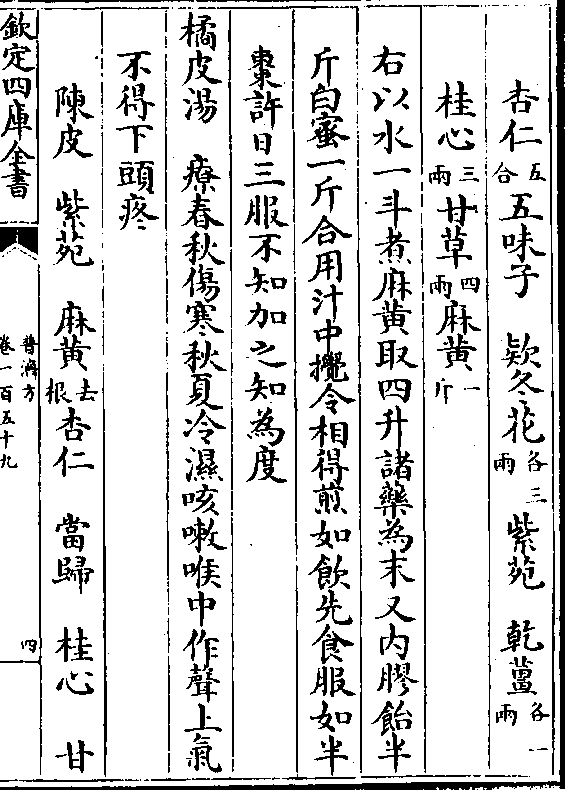 杏仁五合五味子 欵冬花各三兩 紫苑 乾薑各一兩
桂心三兩甘草四兩麻黄一斤
右以水一斗煮麻黄取四升諸藥為末又内膠飴半
斤白蜜一斤合用汁中攪令相得煎如飲先食服如半
棗許日三服不知加之知為度
橘皮湯 療春秋傷寒秋夏冷濕咳嗽喉中作聲上氣
不得下頭疼
陳皮 紫苑 麻黄去根杏仁 當歸 桂心 甘
欽定四庫全書
普濟方
卷一百五十九
四